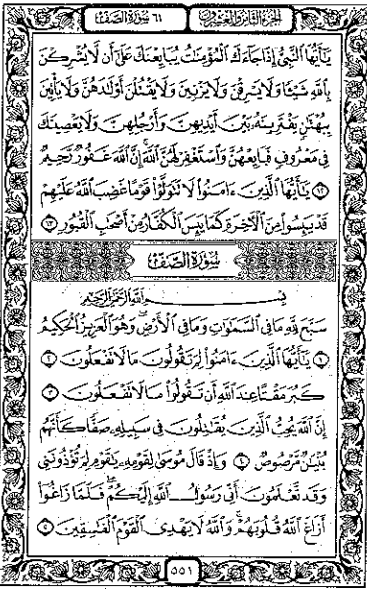 الجزء الثامن والعشرون
٦١ سورة الصف
يَٰٓأَيُّهَا ٱلنَّبِىُّ إِذَا جَآءَكَ ٱلْمُؤْمِنَٰتُ يُبَايِعْنَكَ عَلَىٰٓ أَن لَّا يُشْرِكْنَ
بِٱللَّهِ شَيْـًٔا وَلَا يَسْرِقْنَ وَلَا يَزْنِينَ وَلَا يَقْتُلْنَ أَوْلَٰدَهُنَّ وَلَا يَأْتِينَ
بِبُهْتَٰنٍ يَفْتَرِينَهُۥ بَيْنَ أَيْدِيهِنَّ وَأَرْجُلِهِنَّ وَلَا يَعْصِينَكَ
فِى مَعْرُوفٍ فَبَايِعْهُنَّ وَٱسْتَغْفِرْ لَهُنَّ ٱللَّهَ إِنَّ ٱللَّهَ غَفُورٌ رَّحِيمٌ
١٢ يَٰٓأَيُّهَا ٱلَّذِينَ ءَامَنُوا۟ لَا تَتَوَلَّوْا۟ قَوْمًا غَضِبَ ٱللَّهُ عَلَيْهِمْ
قَدْ يَئِسُوا۟ مِنَ ٱلْءَاخِرَةِ كَمَا يَئِسَ ٱلْكُفَّارُ مِنْ أَصْحَٰبِ ٱلْقُبُورِ ١٣
سورة الصف
بِسْمِ ٱللَّهِ ٱلرَّحْمَٰنِ ٱلرَّحِيمِ
سَبَّحَ لِلَّهِ مَا فِى ٱلسَّمَٰوَٰتِ وَمَا فِى ٱلْأَرْضِ وَهُوَ ٱلْعَزِيزُ ٱلْحَكِيمُ
١ يَٰٓأَيُّهَا ٱلَّذِينَ ءَامَنُوا۟ لِمَ تَقُولُونَ مَا لَا تَفْعَلُونَ ٢
كَبُرَ مَقْتًا عِندَ ٱللَّهِ أَن تَقُولُوا۟ مَا لَا تَفْعَلُونَ ٣
إِنَّ ٱللَّهَ يُحِبُّ ٱلَّذِينَ يُقَٰتِلُونَ فِى سَبِيلِهِۦ صَفًّا كَأَنَّهُم
بُنْيَٰنٌ مَّرْصُوصٌ ٤ وَإِذْ قَالَ مُوسَىٰ لِقَوْمِهِۦ يَٰقَوْمِ لِمَ تُؤْذُونَنِى
وَقَد تَّعْلَمُونَ أَنِّى رَسُولُ ٱللَّهِ إِلَيْكُمْ فَلَمَّا زَاغُوٓا۟
أَزَاغَ ٱللَّهُ قُلُوبَهُمْ وَٱللَّهُ لَا يَهْدِى ٱلْقَوْمَ ٱلْفَٰسِقِينَ ٥
٥٥١